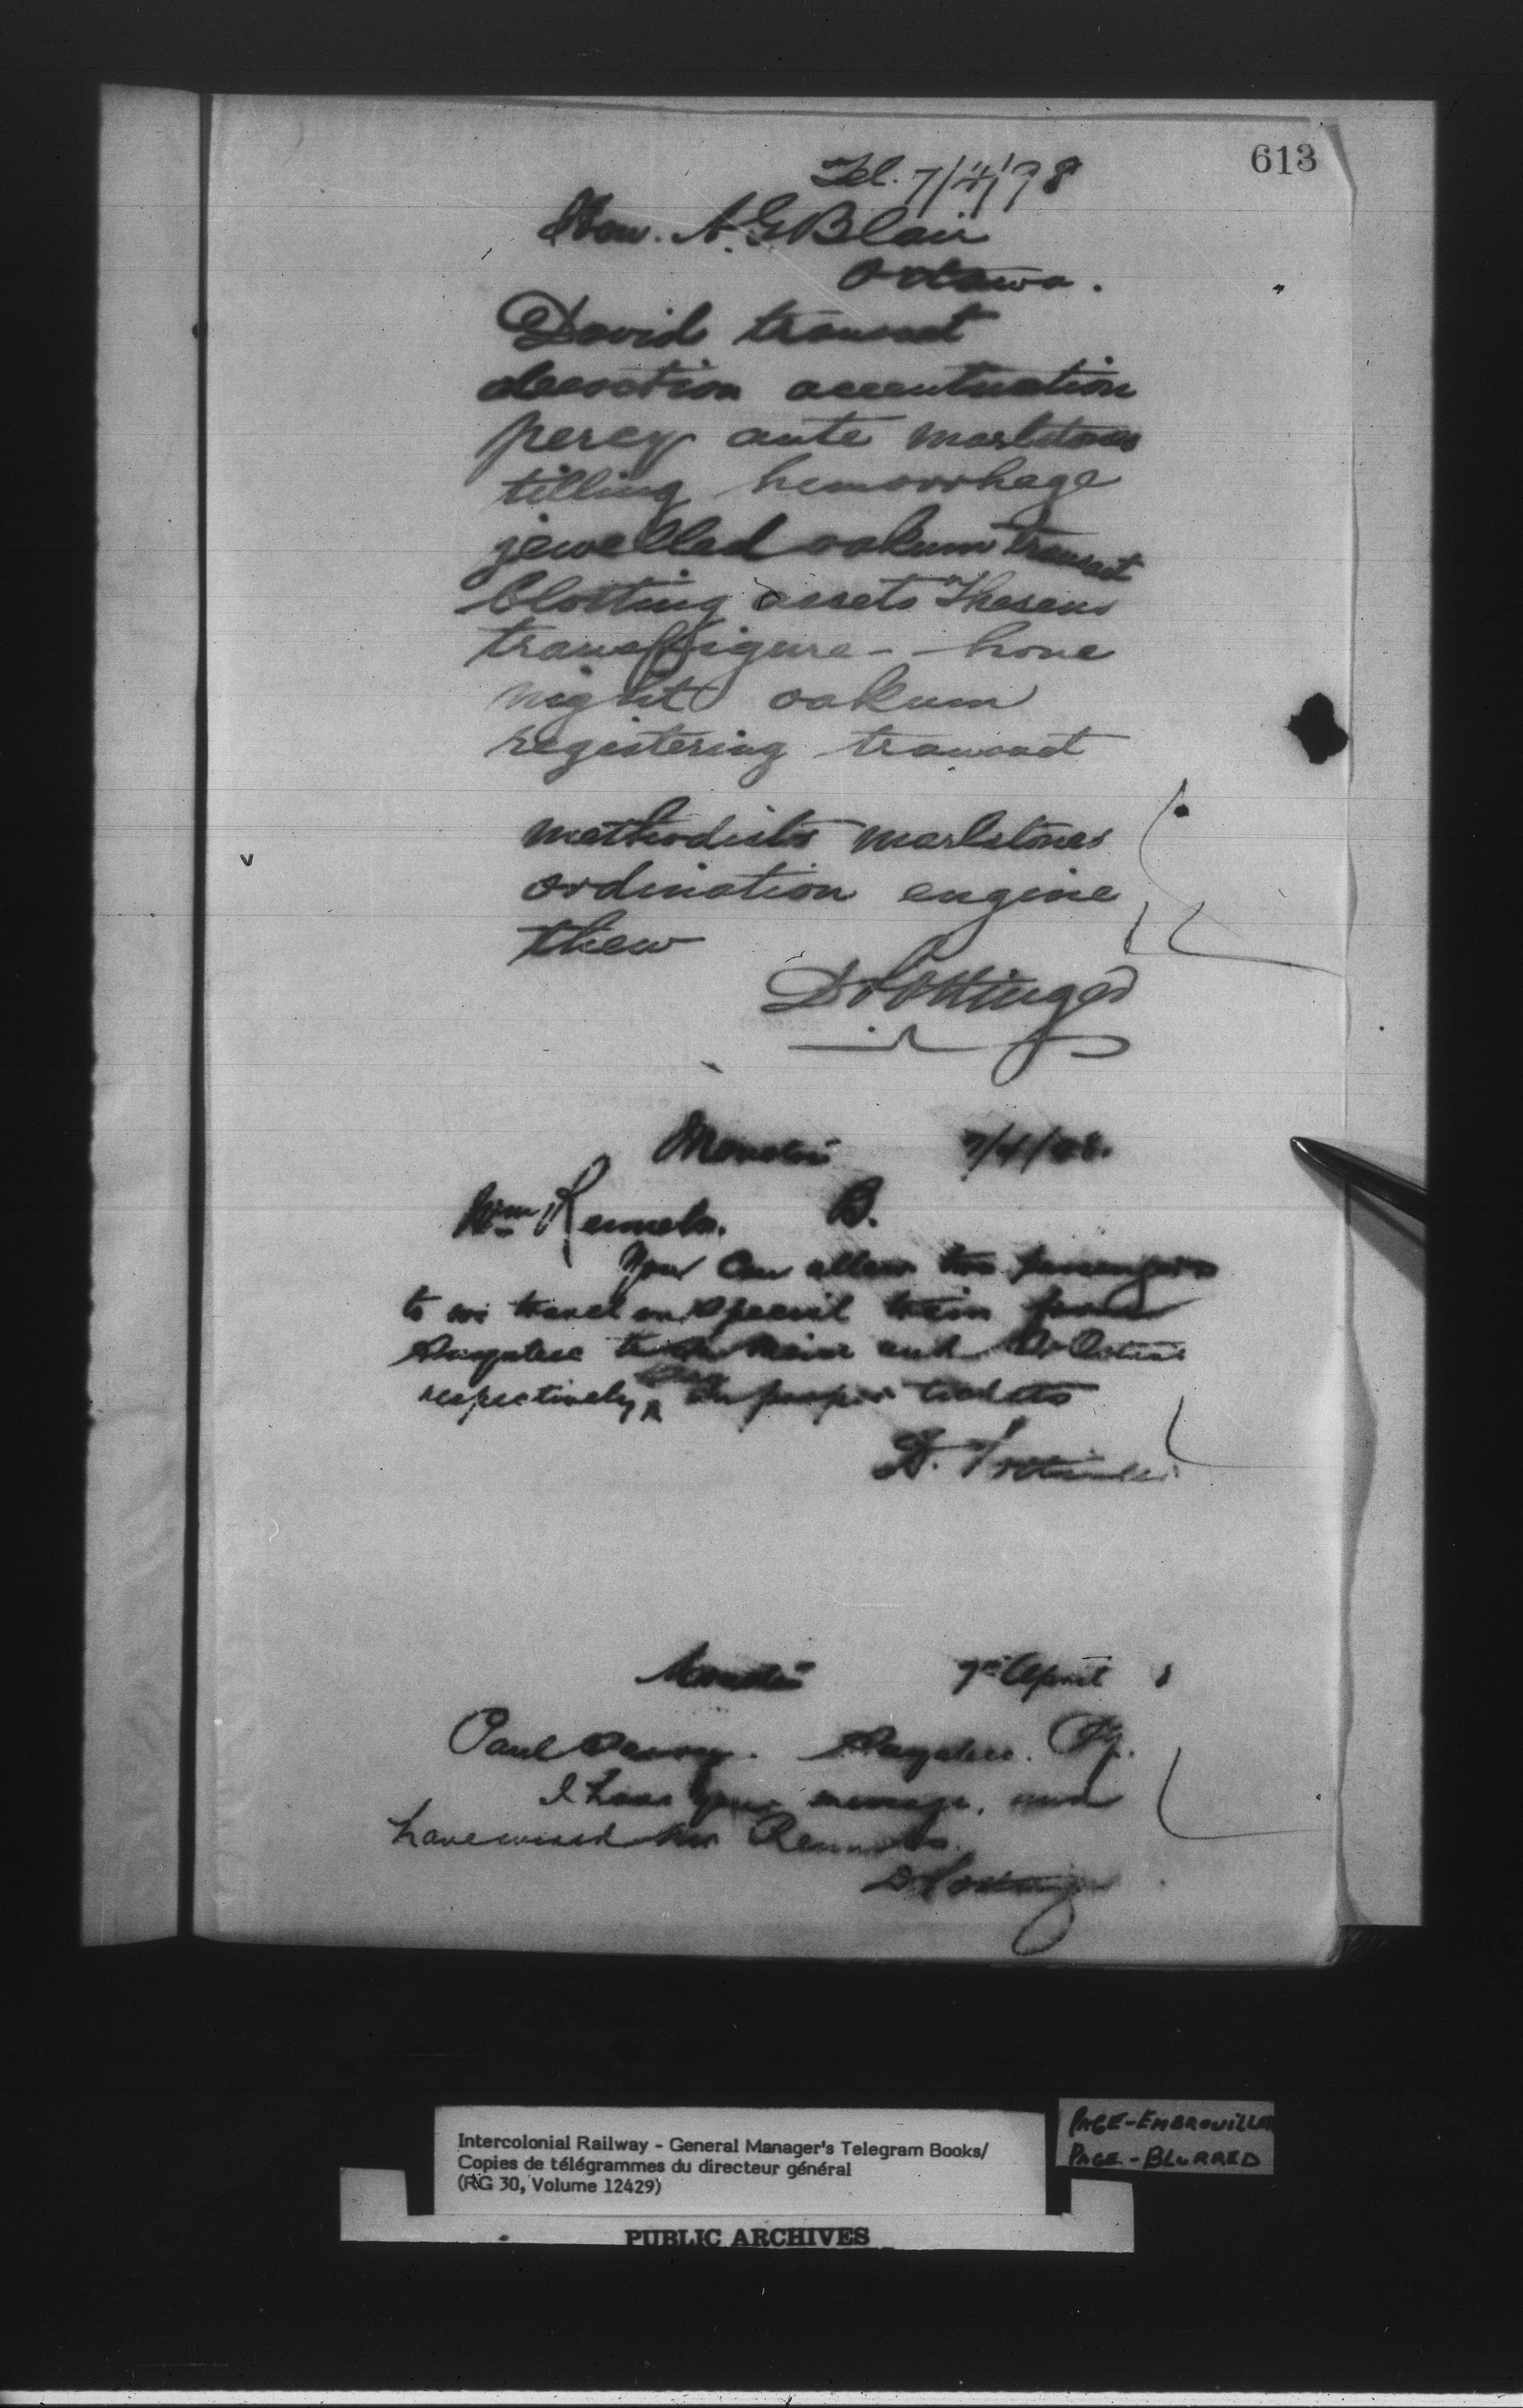 613
Tel. 7/4/98
Hon. A. G Blair
Ottawa.
David transact
devotion accentuation
percy ante marlstones
tilling hemorrhage
jewelled oakum transact
blotting assets Theseus
transfigure - hone
night oakum
registering transact
methodists marlstones
ordination engine
thew
D Pottinger
Moncton 7/4/98.
Wm Rennels. B.
You can allow two passengers
to travel on special train from
and
respectively, on proper tickets
D. Pottinger
Moncton 7th April 8
Paul
I have your message, and
have wired Mr Rennels.
D Pottinger
Intercolonial Railway - General Manager's Telegram Books/
Copies de télégrammes du directeur général
(RG 30, Volume 12429)
PAGE-EMBROUILLER
PAGE-BLURRED
PUBLIC ARCHIVES